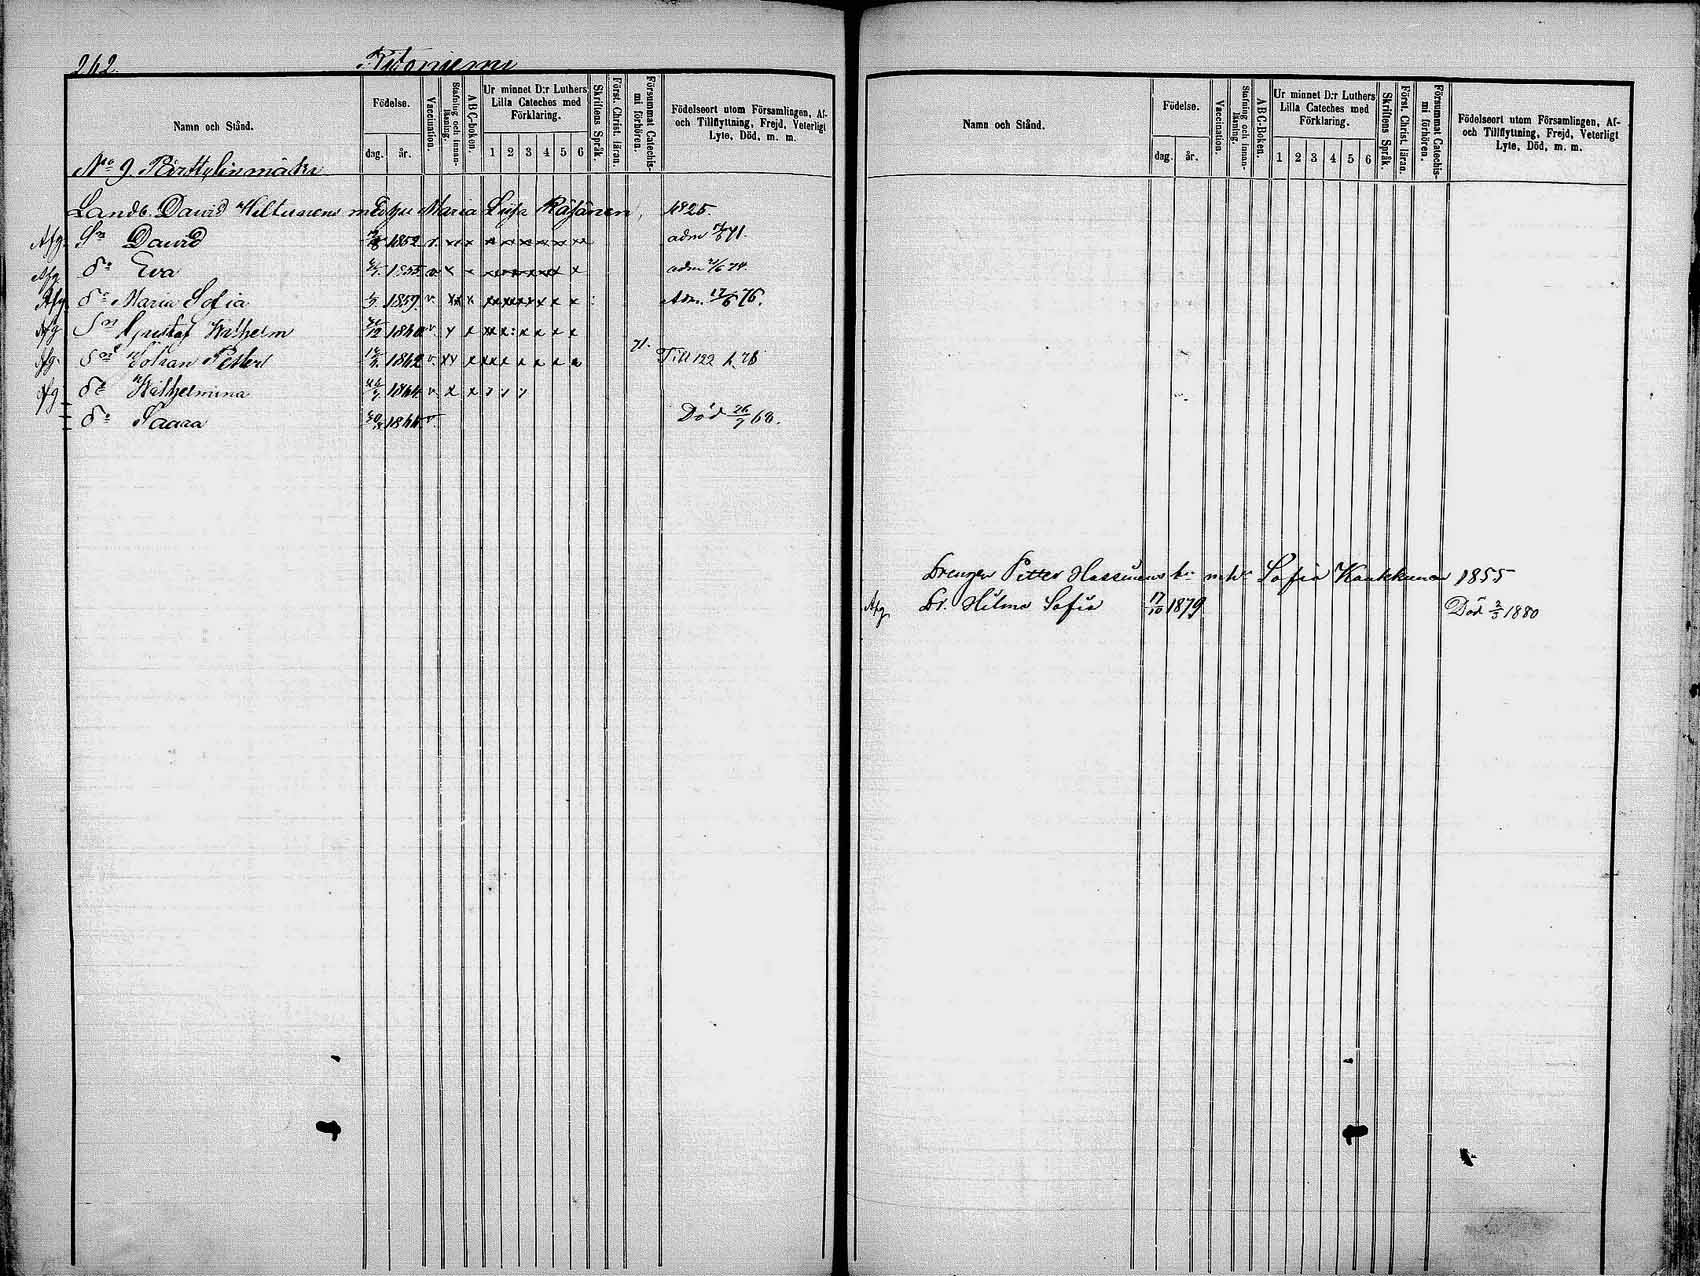 262.
Namn och Stånd.
Födelse.
dag. år.
Vaccination.
Stafning och innanläsning.
ABC-boken.
Ur minnet D:r Luthers Lilla Cateches med Förklaring.
1 2 3 4 5 6
Skriftens Språk.
Först. Christ. läran.
Försummat Catechismi förhören.
Födelseort utom Församlingen, Af- och Tillflyttning, Frejd, Veterligt Lyte, Död, m. m.
No 9. Pirttylinmäki
Landb. David Hiltunens Maria Lisa Räsänen, 1825.
Afg. Sn David 1852 v. x x x x x x x x adm 71.
Afg dr Eva 1855 v x x x x x x x adm 74.
Afg dr Maria Sofia 1859. v. x x x x x x x Adm. 17/6 76.
Afg Sn Gustaf Wilhelm 1860 v. x x x x x x x
Afg. Sn Johan Petter 1862 v. x x x x x x x 71. Till 122 76
Afg dr Wilhelmina 1864 v. x x
dr Saara 1866 v. Död 26/7 68.
Namn och Stånd.
Födelse.
dag. år.
Vaccination.
Stafning och innanläsning.
ABC-Boken.
Ur minnet D:r Luthers Lilla Cateches med Förklaring.
1 2 3 4 5 6
Skriftens Språk.
Först. Christ. läran.
Försummat Catechismi förhören.
Födelseort utom Församlingen, Af- och Tillflyttning, Frejd, Veterligt Lyte, Död, m. m.
Drengen Petter Hassinens Sofia Kaukkunen 1855
Afg Dr. Hilma Sofia 17/10 1879 Död 2/3 1880